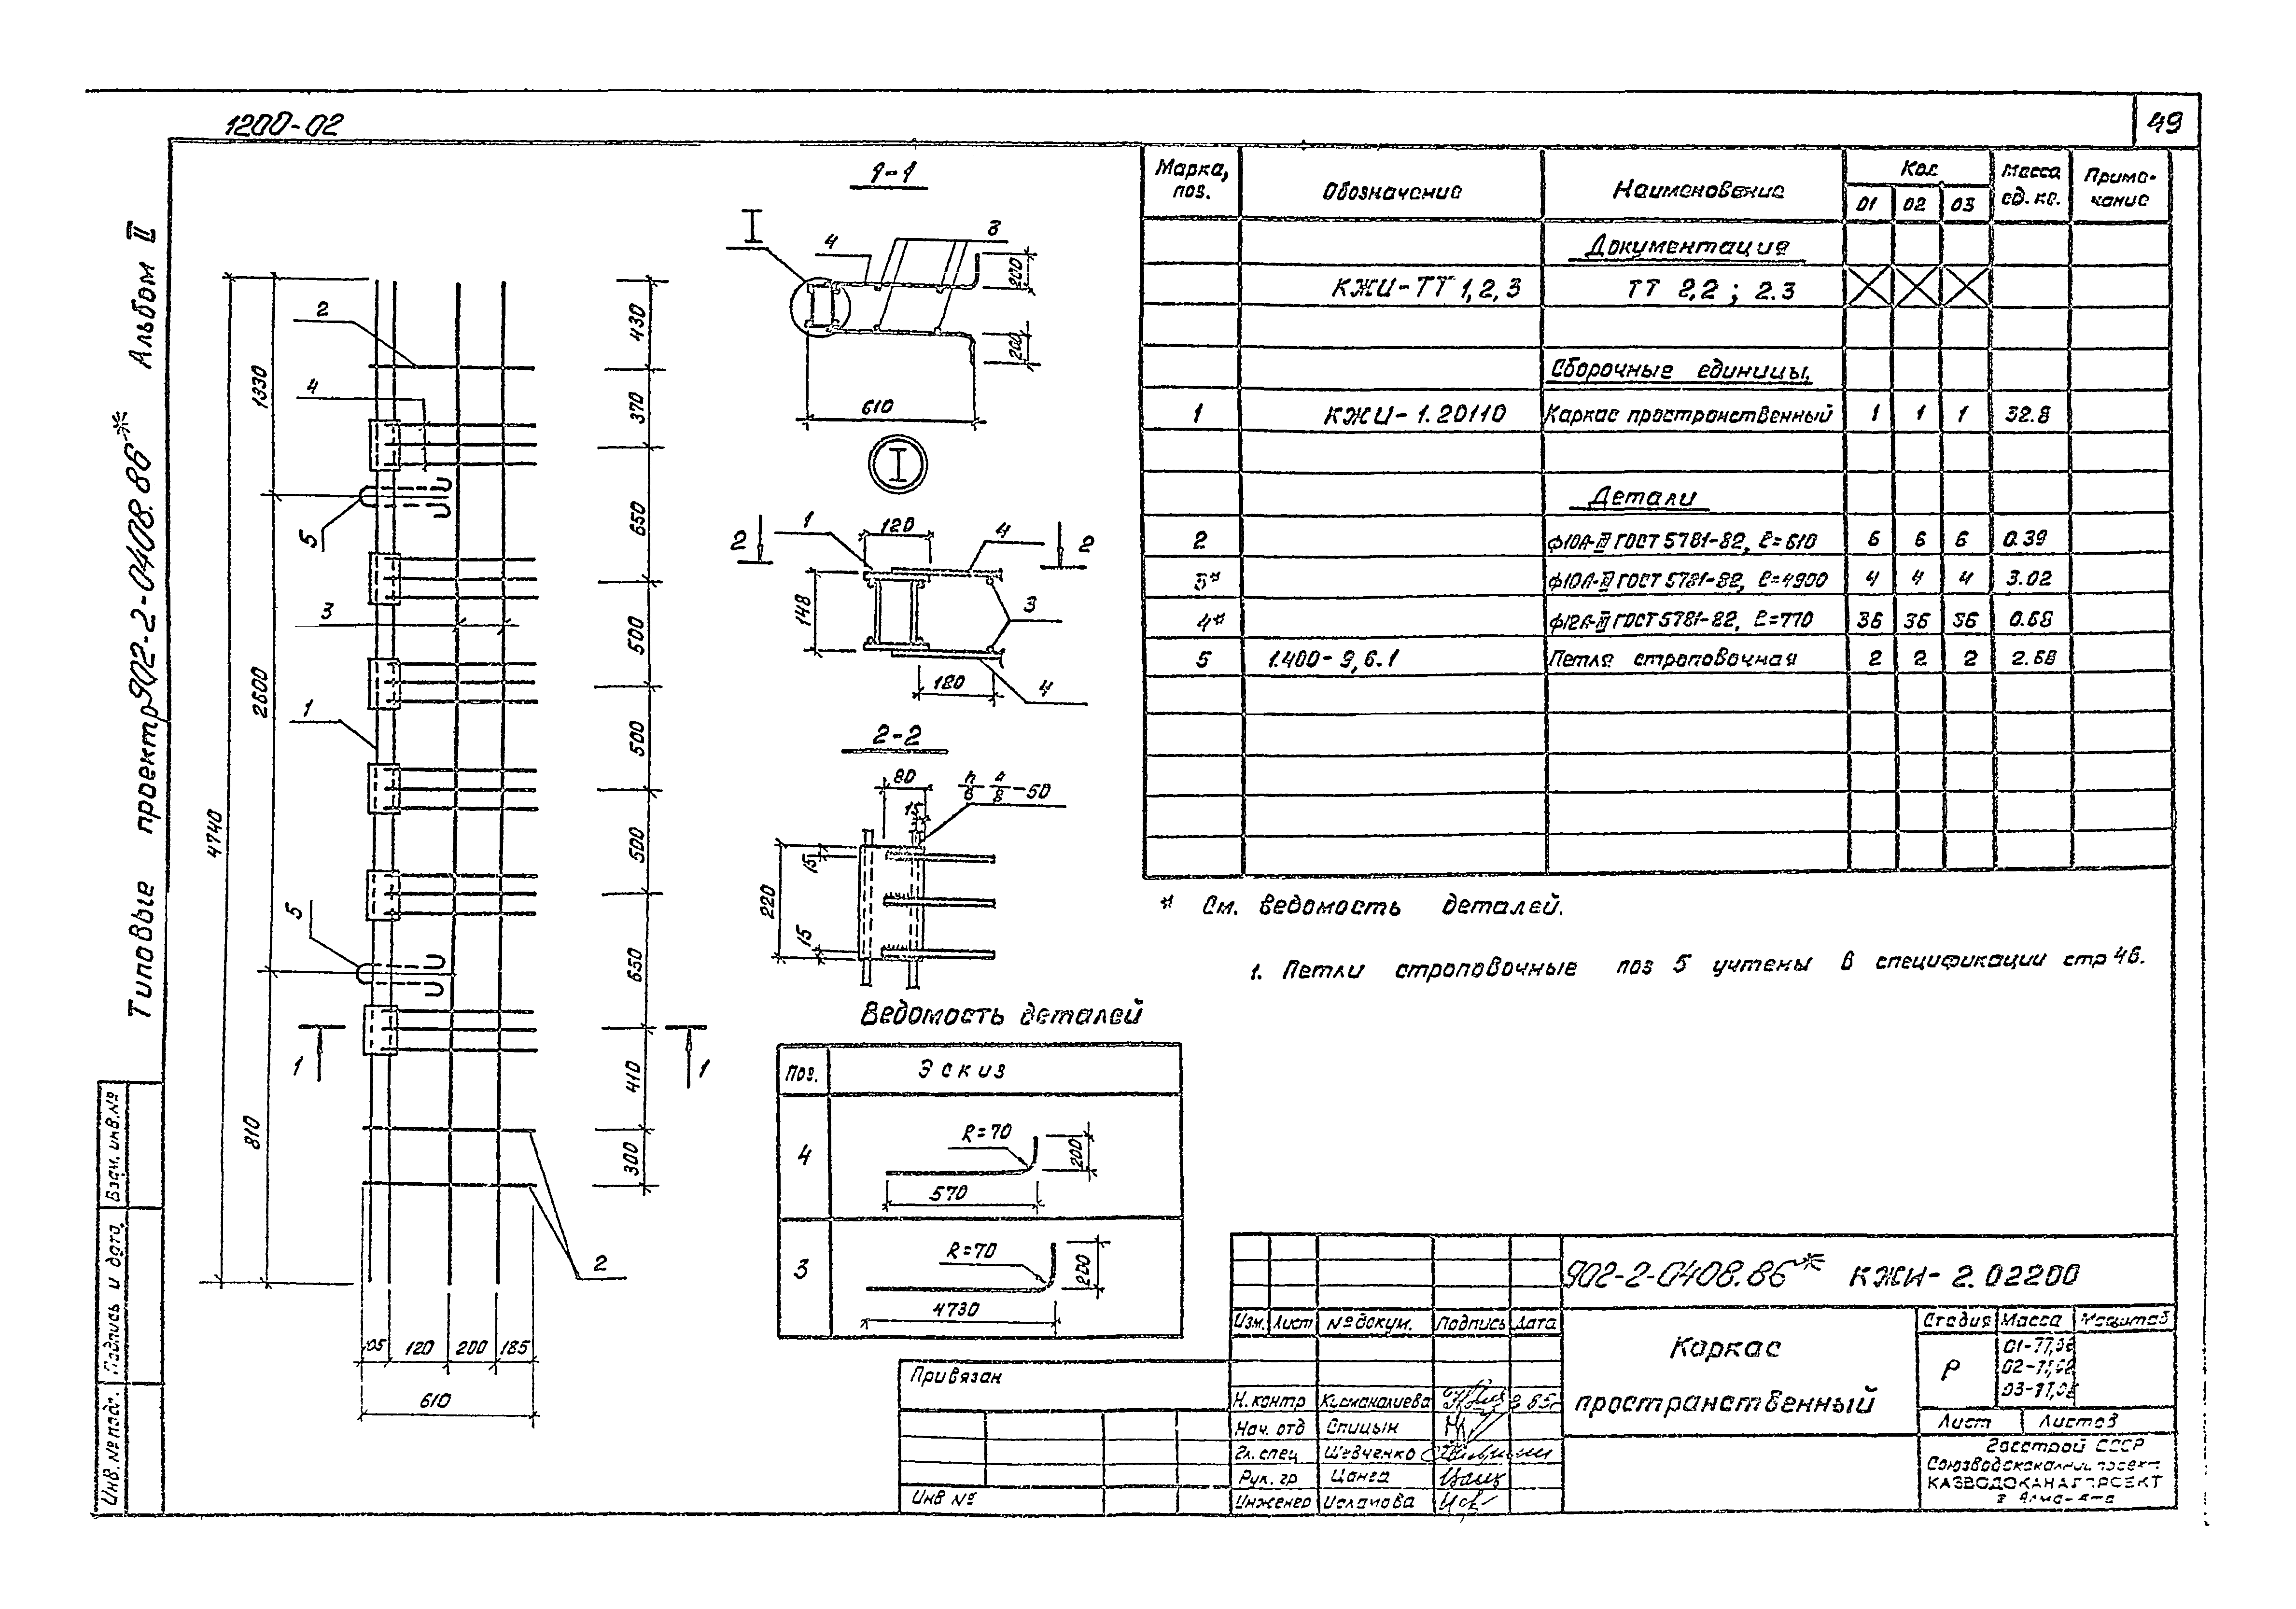 1200-02
49
Типовые проект 902-2-0408.86* Альбом II
Марка, поз.
Обозначение
Наименование
Кол
01 02 03
Масса ед. кг.
Примечание
Документация
КЖИ-ТТ 1,2,3 ТТ 2.2 ; 2.3
Сборочные единицы
1 КЖИ-1.20110 Каркас пространственный 1 1 1 32.8
Детали
2 ф10А-III ГОСТ 5781-82, ℓ=610 6 6 6 0.39
3* ф10А-III ГОСТ 5781-82, ℓ=4900 4 4 4 3.02
4* ф12А-III ГОСТ 5781-82, ℓ=770 36 36 36 0.68
5 1.400-9,6.1 Петля строповочная 2 2 2 2.68
* См. ведомость деталей.
1. Петли строповочные поз 5 учтены в спецификации стр 46.
2
4
5
3
1
5
2
1 1
4740
1330
2600
810
430
370
650
500
500
500
650
410
300
105 120 200 185
610
1-1
I
4
3
200
200
610
I
2 2
1
120
4
148
3
180
4
2-2
80
15
-50
15
220
15
Ведомость деталей
Поз. Эскиз
4
R=70
200
570
3
R=70
200
4730
902-2-0408.86* КЖИ-2.02200
Изм. Лист № докум. Подпись Дата
Каркас
пространственный
Стадия Масса Масштаб
Р
Лист Листов
Привязан
Инв №
Н. контр Кусманалиева
Нач. отд Спицын
Гл. спец Шевченко
Рук. гр Цанга
Инженер Исламова
Госстрой СССР
Союзводоканалпроект
КАЗВОДОКАНАЛПРОЕКТ
г Алма-Ата
Взам. инв.№
Подпись и дата
Инв.№ подл.